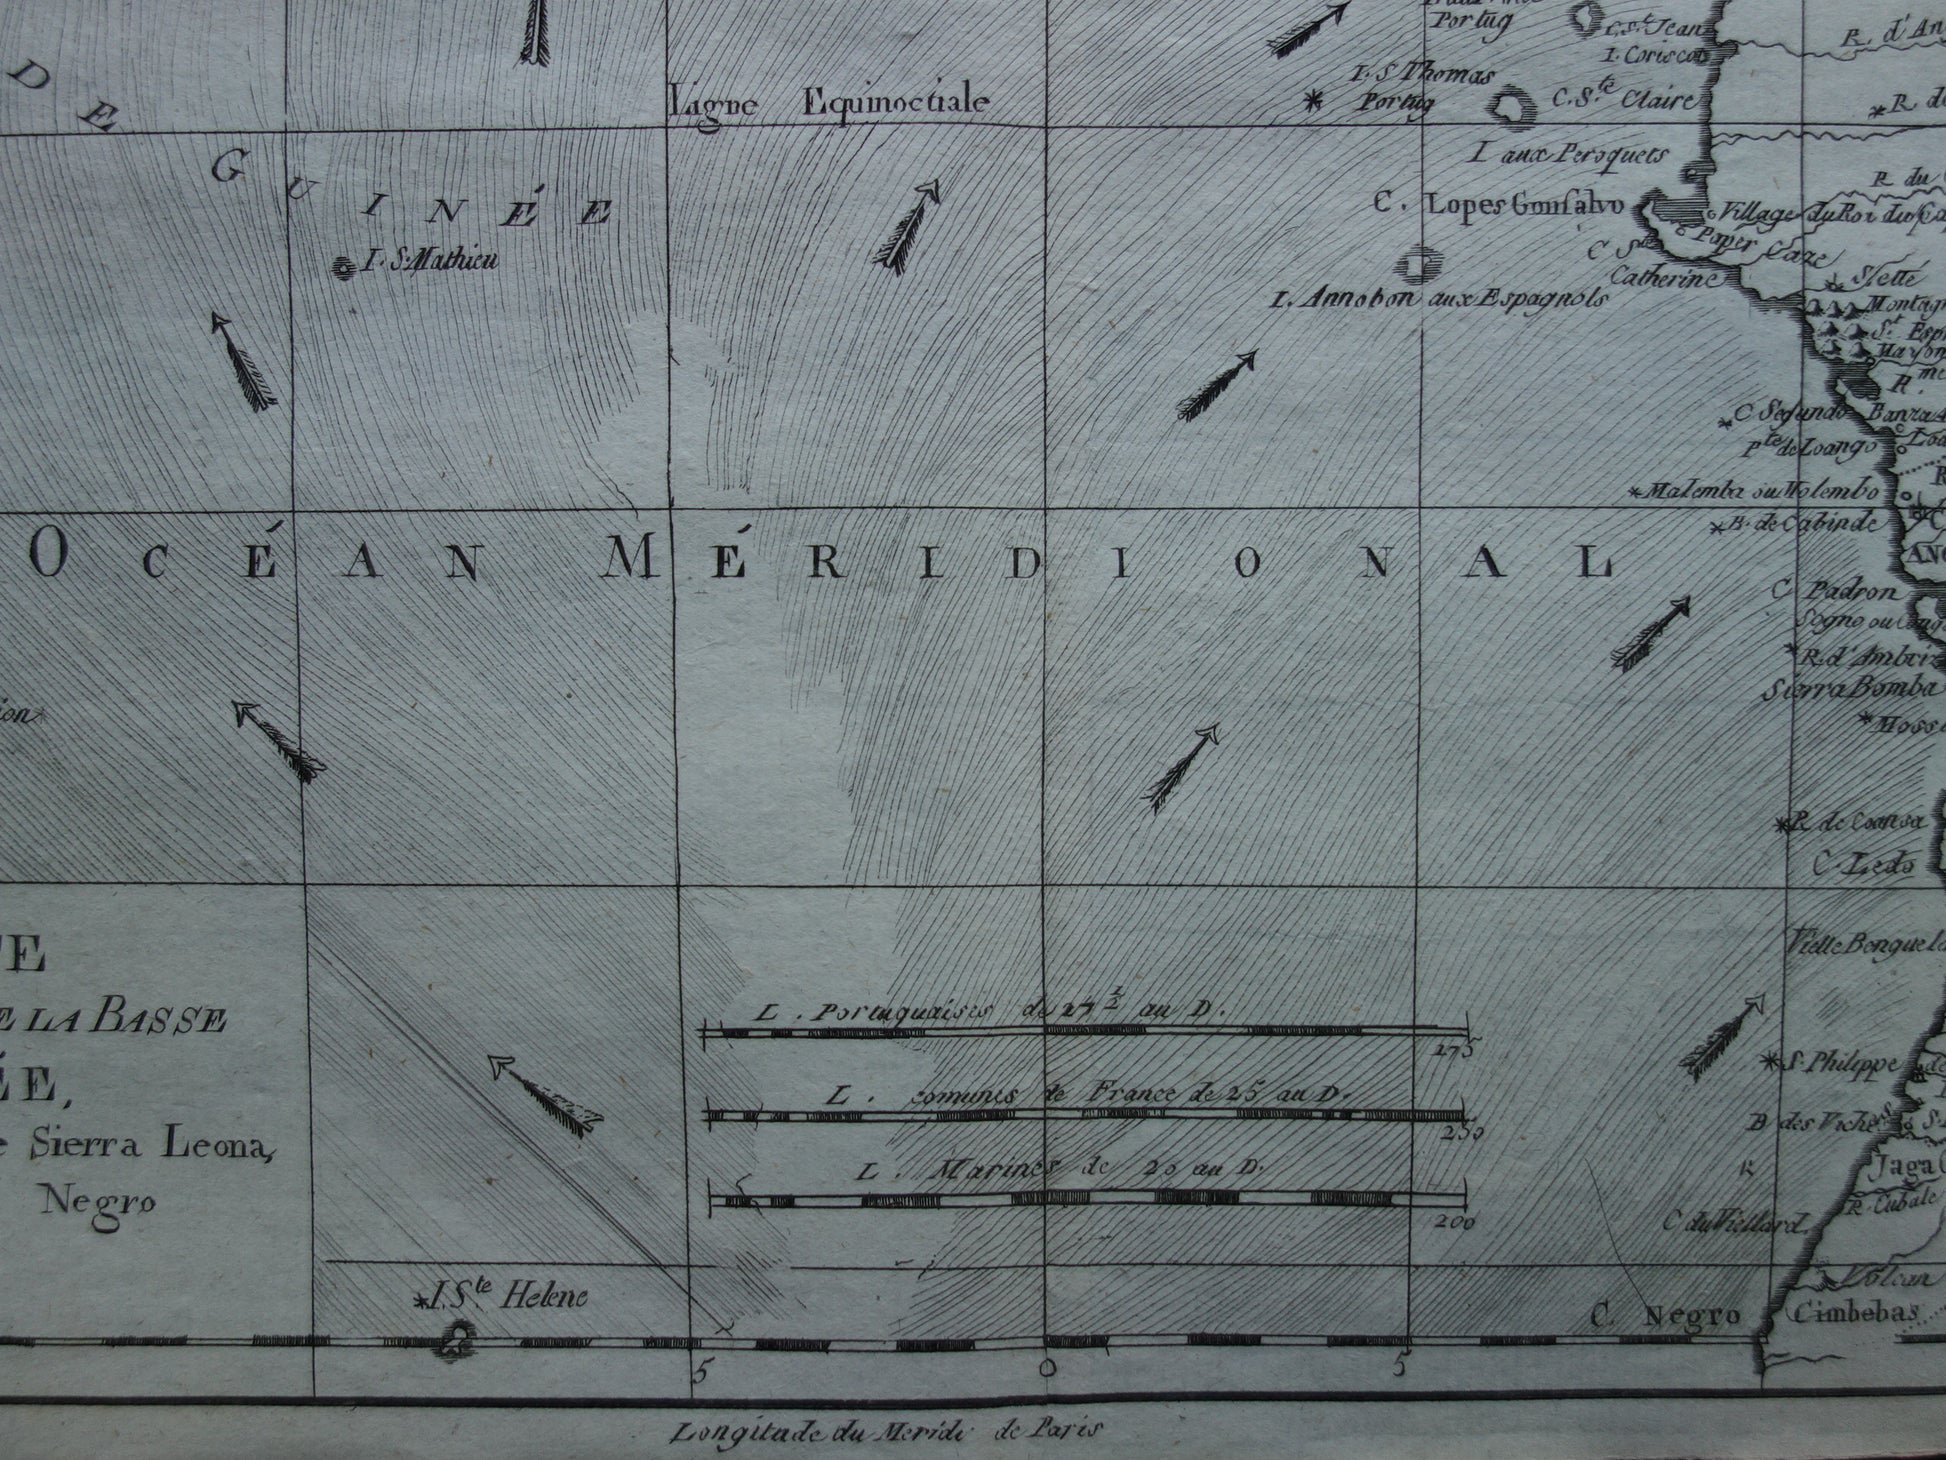 Portug
C. St. Jean
I. Coriscos
R. d'An
I. S Thomas
Portug
C. Ste. Claire
Ligne Equinoctiale
DE
GUINÉE
I aux Peroquets
R du
C. Lopes Gonsalvo
Village du Roi du
I. S. Mathieu
C Ste
Catherine
I. Annobon aux Espagnols
Sette
Montagn
St. Esp
Mayom
C Segundo
Banza
Pte de Loango
Loa
Malemba ou Molembo
B. de Cabinde
OCÉAN MÉRIDIONAL
ANG
C Padron
Sogno ou Congo
R. d'Ambriz
Sierra Bomba
ion
Moss
R de Coansa
C. Ledo
TE
E LA BASSE
ÉE,
e Sierra Leona,
Negro
Vielle Benguela
L. Portuguaises de 27 1/2 au D.
275
L. comunes de France de 25 au D.
250
S. Philippe
L. Marines de 20 au D.
200
B des Viches
Jaga C
R. Cubale
C du Vieillard
Volcan
I. Ste Helene
C. Negro
Cimbebas
5 0 5
Longitude du Meridi de Paris